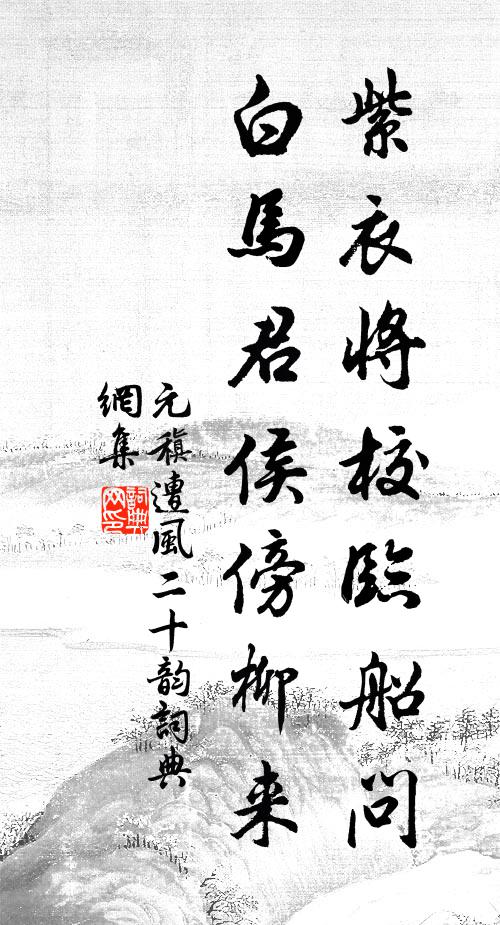 紫衣將校臨船問
白馬君侯傍柳来
元稹遭風二十韵詞典
網集
詞典
网印